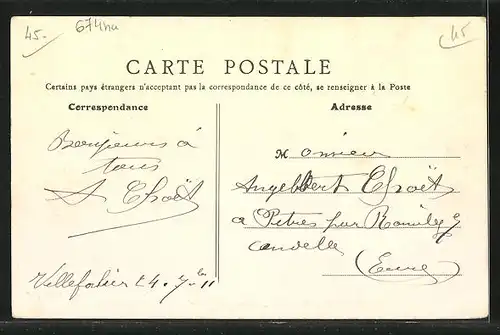 45.-
674hu
45
CARTE POSTALE
Certains pays étrangers n'acceptant pas la correspondance de ce côté, se renseigner à la Poste
Correspondance
Adresse
Bonjours à
tous
A Thoët
Villefolier 14.7.bre 11
Monsieur
Angelbert Thoët
a Pitres par Romilly s
andelle
(Eure)